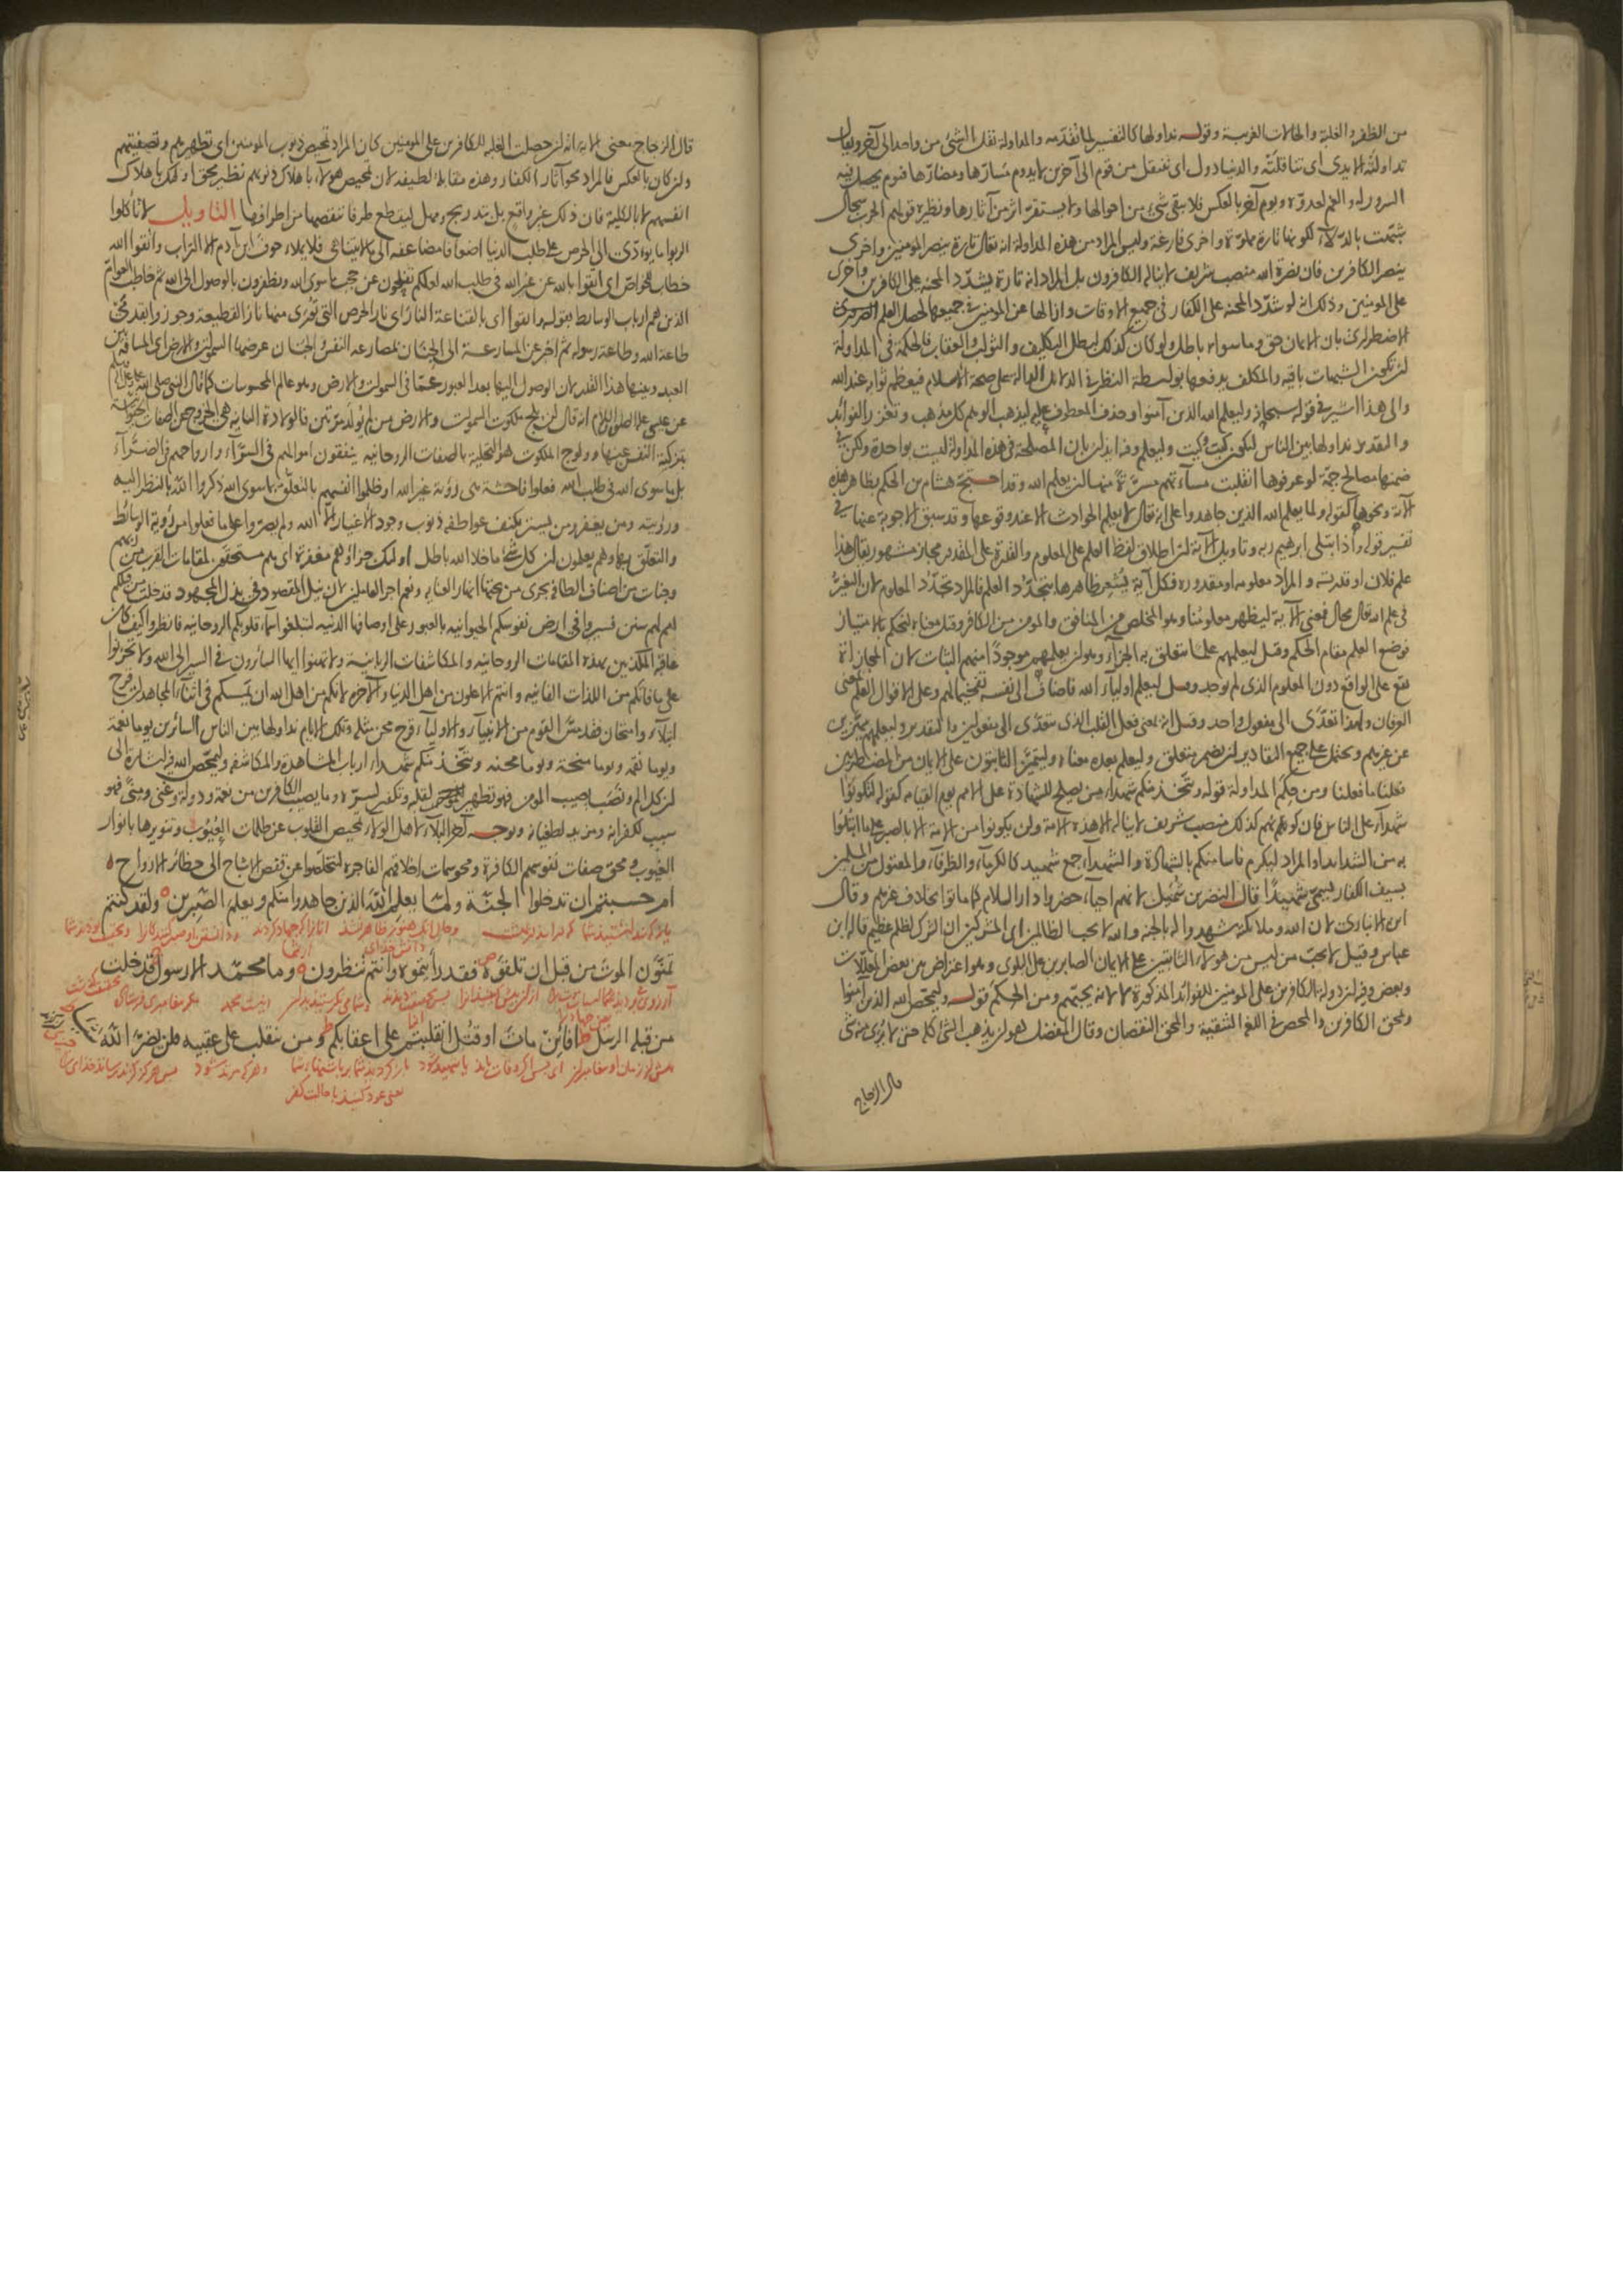 من الظفر والغلبة والحالات الغريبة وقوله نداولها كالتفسير لما تقدمه والمداولة نقل الشئ من واحد الى آخر ويقال
تداولته الايدى اى تناقلته والدنيا دول اى تنتقل من قوم الى آخرين لا يدوم مسارّها ومضارّها فيوم يحصل فيه
السرور له والغم لعدوّه ويوم آخر بالعكس فلا يبقى شئ من احوالها ولا يستقر اثر من آثارها ونظيره قولهم الحرب سجال
شبّهت بالدلاء لكونها تارة مملوّة واخرى فارغة وليس المراد من هذه المداولة انه تعالى تارة ينصر المومنين واخرى
ينصر الكافرين فان نصرة الله منصب شريف لا يناله الكافرون بل المراد انه تارة يشدّد المحنة على الكافرين واخرى
على المومنين وذلك انه لو شدّد المحنة على الكفار فى جميع الاوقات وازالها عن المومنين فى جميعها لحصل العلم الضرورى
الاضطرارى بان الايمان حق وما سواه باطل ولو كان كذلك لبطل التكليف والثواب والعقاب فالحكمة فى المداولة
ان تكون الشبهات باقية والمكلف يدفعها بواسطة النظر فى الدلائل الدالة على صحة الاسلام فيعظم ثوابه عند الله
والى هذا اشير فى قوله سبحانه وليعلم الله الذين آمنوا وحذف المعطوف عليه ليذهب الوهم كل مذهب وتغزر الفوائد
والتقدير نداولها بين الناس ليكون كيت وكيت وليعلم وفيه ايذان بان المصلحة فى هذه المداولة ليست بواحدة ولكن فى
ضمنها مصالح جمّة لو عرفوها انقلبت مساءتهم مسرّة منها ان يعلم الله وقد احتج هشام بن الحكم بظاهر هذه
الآية ونحوها كقوله ولما يعلم الله الذين جاهدوا على انه تعالى لا يعلم الحوادث الا عند وقوعها وقد سبق الاجوبة عنها فى
تفسير قوله واذ ابتلى ابرهيم ربه وتاويل الآية ان اطلاق لفظ العلم على المعلوم والقدرة على المقدور مجاز مشهور يقال هذا
علم فلان او قدرته والمراد معلومه او مقدوره فكل آية يشعر ظاهرها بتجدّد العلم فالمراد تجدّد المعلوم لان التغيّر
فى علم الله تعالى محال فمعنى الآية ليظهر معلومنا وهو المخلص من المنافق والمومن من الكافر وقيل معناه ليحكم بالامتياز
فوضع العلم مقام الحكم وقيل ليعلمهم علما يتعلق به الجزاء وهو ان يعلمهم موجودا منهم الثبات لان المجازاة
تقع على الواقع دون المعلوم الذى لم يوجد وقيل ليعلم اولياء الله فاضاف الى نفسه تفخيما لهم وعلى الاقوال العلم بمعنى
العرفان ولهذا تعدّى الى مفعول واحد وقيل انه بمعنى فعل القلب الذى يتعدّى الى مفعولين والتقدير وليعلمهم مميّزين
عن غيرهم ويحتمل على جميع التقادير ان يضمر متعلق وليعلم بعده معناه وليتميّز الثابتون على الايمان من المضطربين
فعلنا ما فعلنا ومن حِكَم المداولة قوله ويتّخذ منكم شهداء من يصلح للشهادة على الامم يوم القيامة كقوله لتكونوا
شهداء على الناس فان كونهم كذلك منصب شريف لا يناله الا هذه الامة ولن يكونوا من الامة الا بالصبر على ما ابتلوا
به من الشدائد او المراد ليكرم ناسا منكم بالشهادة والشهداء جمع شهيد كالكرماء والظرفاء والمقتول من المسلمين
بسيف الكفار يسمّى شهيدا قال النضر بن شميل لانهم احياء حضروا دار السلام كما ماتوا بخلاف غيرهم وقال
ابن الانبارى لان الله وملائكته شهدوا له بالجنة والله لا يحب الظالمين اى المشركين ان الشرك لظلم عظيم قاله ابن
عباس وقيل لا يحب من ليس من هؤلاء الثابتين على الايمان الصابرين على البلوى وهو اعتراض بين بعض المعلّلات
وبعض وفيه ان دولة الكافرين على المومنين للفوائد المذكورة لا لانه يحبهم ومن الحكم قوله وليمحّص الله الذين آمنوا
ويمحق الكافرين والمحص فى اللغة التنقية والمحق النقصان وقال المفضل هو ان يذهب الشئ كله حتى لا يرى منه شئ
قال الزجاج
قال الزجاج معنى الآية انه ان حصلت الغلبة للكافرين على المومنين كان المراد تمحيص ذنوب المومنين اى تطهيرهم وتصفيتهم
وان كان بالعكس فالمراد محو آثار الكفار وهذه مقابلة لطيفة لان تمحيص هؤلاء باهلاك ذنوبهم نظير محق اولئك باهلاك
انفسهم لا بالكلية فان ذلك غير واقع بل بتدريج ومهل ليقطع طرفا ننقصها من اطرافها التاويل لا تأكلوا
الربوا ما يؤدّى الى الحرص على طلب الدنيا اضعافا مضاعفة الى ما لا يتناهى فلا يملاء جوف ابن آدم الا التراب واتقوا الله
خطاب للخواصّ اى اتقوا بالله عن غير الله فى طلب الله لعلكم تفلحون عن حجب ما سوى الله وتظفرون بالوصول الى الله ثم خاطب العوامّ
الذين هم ارباب الوسائط بقوله واتقوا اى بالقناعة النار اى نار الحرص التى تورى منها نار القطيعة وجوزوا بقدمى
طاعة الله وطاعة رسوله ثم اخبر عن المسارعة الى الجنان بمصارعة النفس والجنان عرضها السموات والارض اى المسافة بين
العبد وبينها هذا القدر لان الوصول اليها بعد العبور عما فى السموات والارض وهو عالم المحسوسات كما قال النبى صلى الله عليه وسلم
عن عيسى عليه الصلوة والسلام انه قال لن يلج ملكوت السموات والارض من لم يولد مرّتين فالولادة الثانية هى الخروج عن الصفات الحيوانية
بتزكية النفس عنها وولوج الملكوت هو التحلية بالصفات الروحانية ينفقون اموالهم فى السرّاء وارواحهم فى الضرّاء
بل ما سوى الله فى طلب الله فعلوا فاحشة هى رؤية غير الله او ظلموا انفسهم بالتعلّق بما سوى الله ذكروا الله بالنظر اليه
ورؤيته ومن يغفر ومن يستر بكنف عواطفه ذنوب وجود الاغيار الا الله ولم يصرّوا على ما فعلوا من رؤية الوسائط
والتعلّق بها وهم يعلمون ان كل شئ ما خلا الله باطل اولئك جزاؤهم مغفرة اى هم مستحقون لمقامات القرب من ربهم
وجنات من اصناف الطافه تجرى من تحتها انهار العناية ونعم اجر العاملين لان نيل المقصود فى بذل المجهود قد خلت من قبلكم
امم لهم سنن فسيروا فى ارض نفوسكم الحيوانية بالعبور على اوصافها الدنيّة لتبلغوا سماء قلوبكم الروحانية فانظروا كيف كان
عاقبة المكذبين بهذه المقامات الروحانية والمكاشفات الربانية ولا تهنوا ايها السائرون فى السير الى الله ولا تحزنوا
على ما فاتكم من اللذات الفانية وانتم الاعلون من اهل الدنيا والآخرة لانكم من اهل الله ان يمسسكم فى اثناء المجاهدات قرح
ابتلاء وامتحان فقد مسّ القوم من الانبياء والاولياء قرح محن مثله وتلك الايام نداولها بين الناس السائرين يوما نعمة
ويوما نقمة ويوما منحة ويوما محنة ويتّخذ منكم شهداء ارباب المشاهدة والمكاشفة وليمحّص الله فيه اشارة الى
ان كل الم ونصب يصيب المومن فهو تطهير لقلبه وتكفير لسرّه وما يصيب الكافرين من نعمة ودولة وغنى ومنى فهو
سبب لكفرانه ومزيد لطغيانه وبوجه آخر البلاء لاهل الولاء تمحيص القلوب عن ظلمات العيوب وتنويرها بانوار
الغيوب ومحق صفات نفوسهم الكافرة ومحو سمات اخلاقهم الفاجرة لتخلّصوا عن قفص الاشباح الى حظائر الارواح
ام حسبتم ان تدخلوا الجنّة ولمّا يعلم الله الذين جاهدوا منكم ويعلم الصّبرين ولقد كنتم
تمنّون الموت من قبل ان تلقوه فقد رأيتموه وانتم تنظرون وما محمّد الا رسول قد خلت
من قبله الرسل افائن مات او قتل انقلبتم على اعقابكم ومن ينقلب على عقبيه فلن يضرّ الله
يعنى عود كنيد با حالت كفر